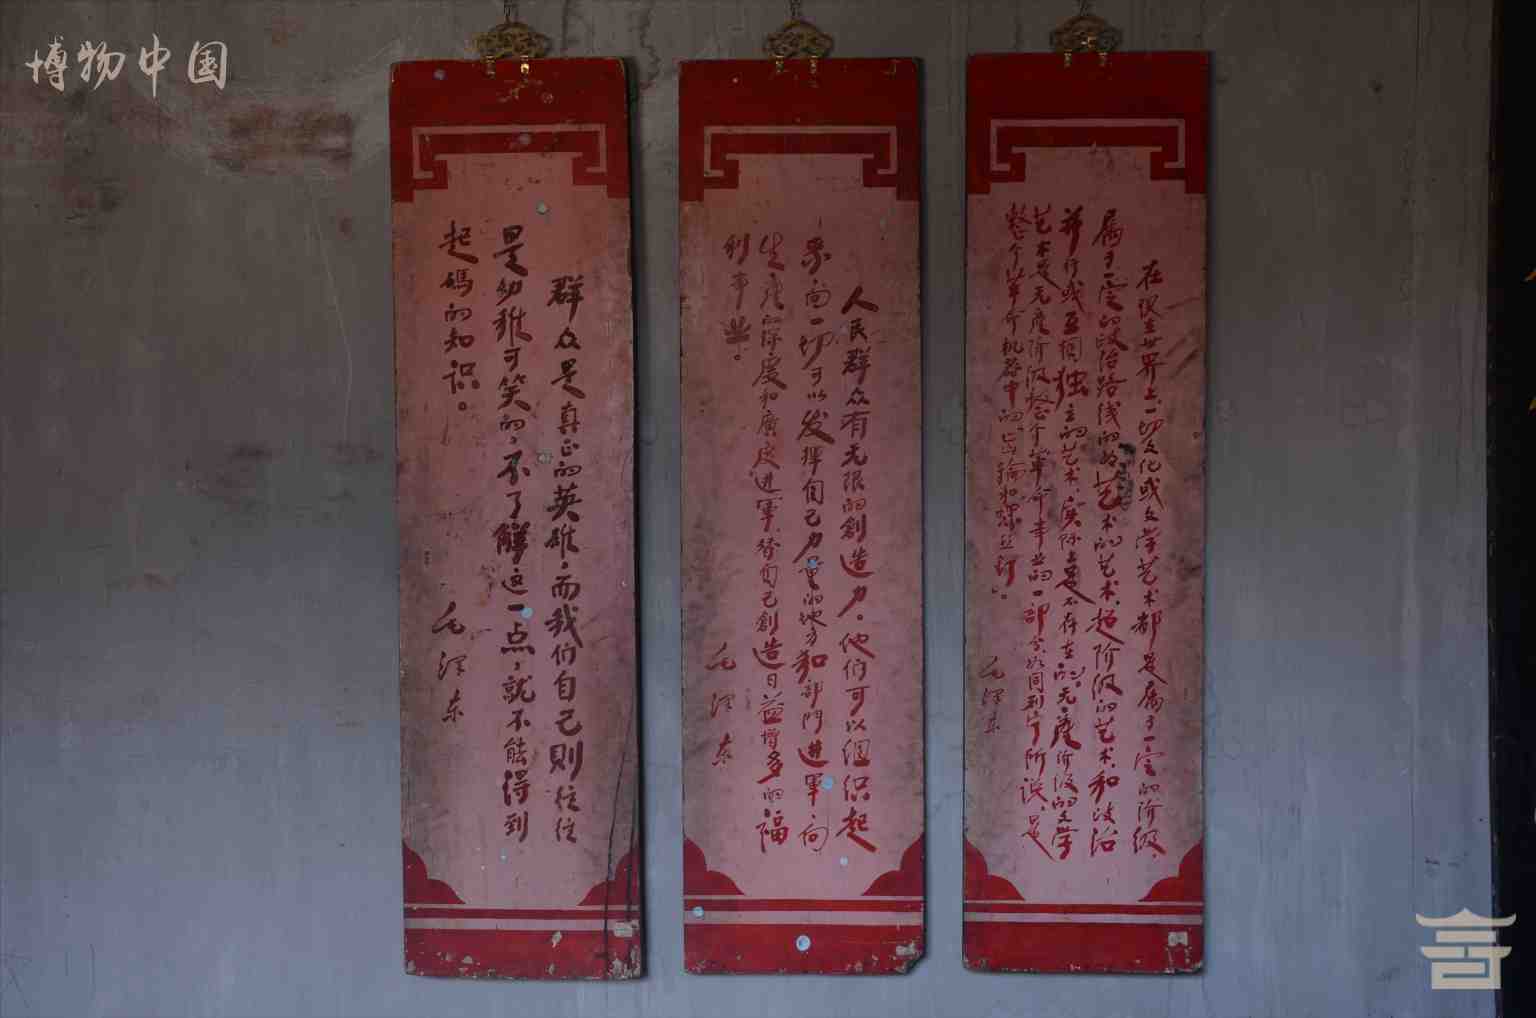 博物中国
在现在世界上，一切文化或文学艺术都是属于一定的阶级，
属于一定的政治路线的。为艺术的艺术，超阶级的艺术，和政治
并行或互相独立的艺术，实际上是不存在的。无产阶级的文学
艺术是无产阶级整个革命事业的一部分，如同列宁所说，是
整个革命机器中的“齿轮和螺丝钉”。
毛泽东
人民群众有无限的創造力。他们可以组织起
来，向一切可以发挥自己力量的地方和部門进軍，向
生产的深度和廣度进軍，替自己創造日益增多的福
利事业。
毛泽东
群众是真正的英雄，而我们自己则往往
是幼稚可笑的，不了解这一点，就不能得到
起碼的知识。
毛泽东